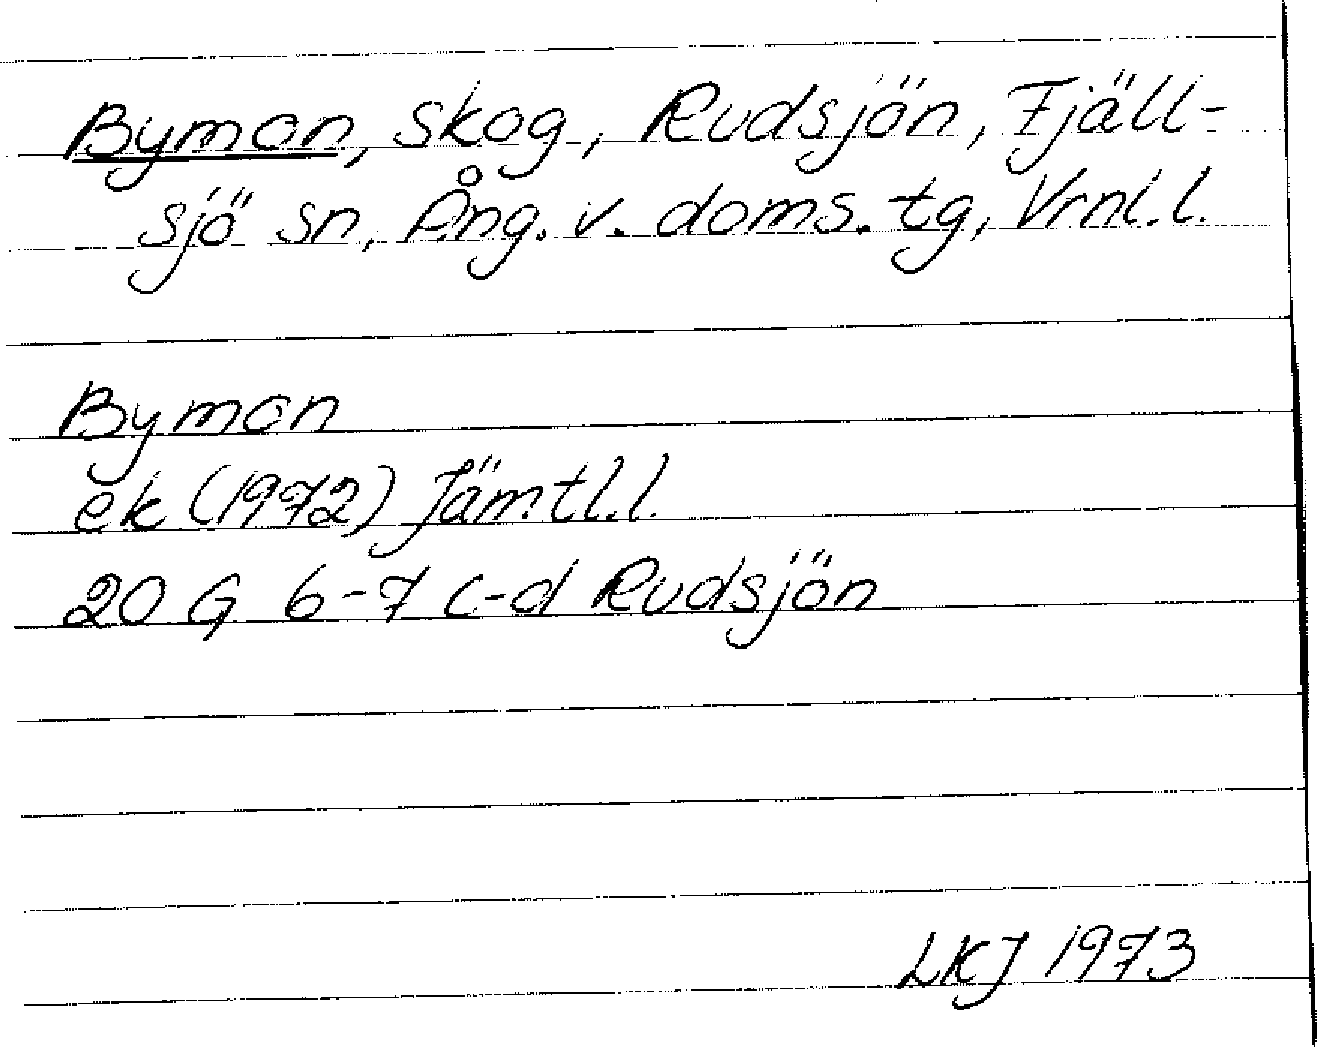 Bymon, skog, Rudsjön, Fjäll-
sjö sn, Ång. v. doms. tg, Vrnl.l.
Bymon
ek (1972) Jämtl.l.
20 G 6-7 c-d Rudsjön
LKJ 1973